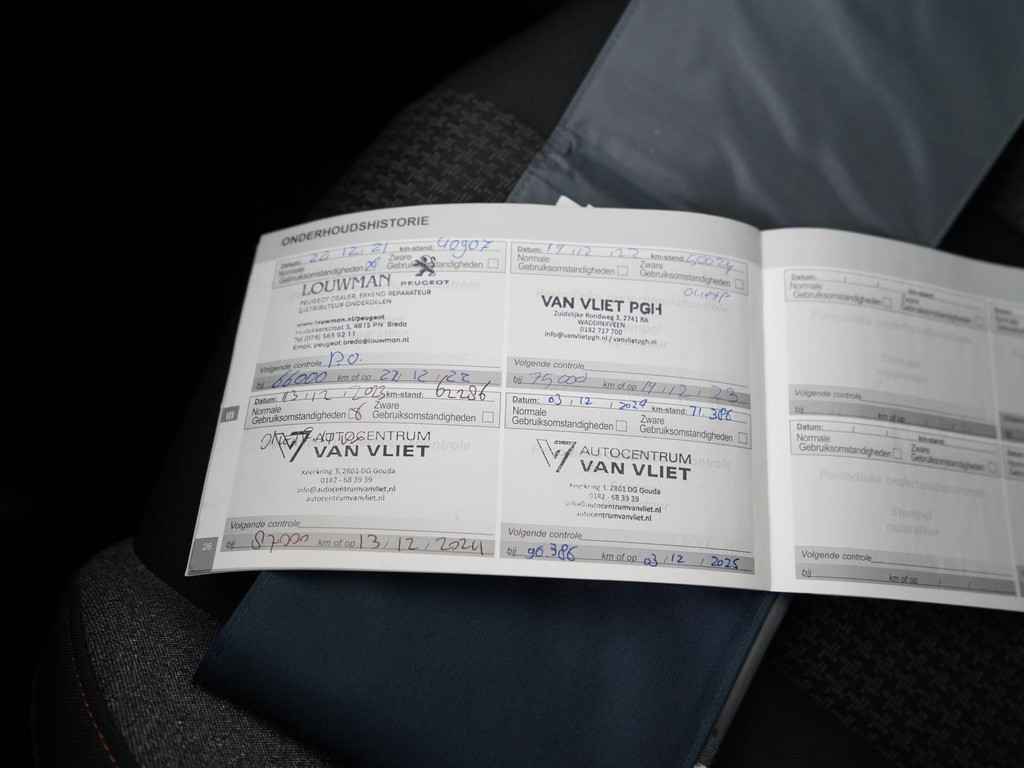 ONDERHOUDSHISTORIE
Datum: 22.12.21 km-stand: 40907
Normale Gebruiksomstandigheden
Zware Gebruiksomstandigheden
LOUWMAN PEUGEOT
PEUGEOT DEALER, ERKEND REPARATEUR
DISTRIBUTEUR ONDERDELEN
www.louwman.nl/peugeot
4815 PN Breda
Tel (076)
Email: peugeot.breda@louwman.nl
Volgende controle P.O.
bij 66000 km of op 22.12.22
Datum: 19.12.22 km-stand:
Normale Gebruiksomstandigheden
Zware Gebruiksomstandigheden
VAN VLIET PGH
Zuidelijke Rondweg 3, 2741 RA
WADDINXVEEN
0182 717 700
info@vanvlietpgh.nl / vanvlietpgh.nl
Volgende controle
bij 75000 km of op 19.12.23
Datum: 13.12.2023 km-stand: 62286
Normale Gebruiksomstandigheden
Zware Gebruiksomstandigheden
AUTOCENTRUM
VAN VLIET
Koerkring 3, 2801 DG Gouda
0182 - 68 39 39
info@autocentrumvanvliet.nl
autocentrumvanvliet.nl
Volgende controle
bij 87000 km of op 13.12.2024
Datum: 03.12.2024 km-stand: 71.386
Normale Gebruiksomstandigheden
Zware Gebruiksomstandigheden
AUTOCENTRUM
VAN VLIET
2801 DG Gouda
0182 - 68 39 39
info@autocentrumvanvliet.nl
autocentrumvanvliet.nl
Volgende controle
bij 96.386 km of op 03.12.2025
Datum:
km-stand:
Normale Gebruiksomstandigheden
Zware Gebruiksomstandigheden
Volgende controle
bij km of op
Datum:
km-stand:
Normale Gebruiksomstandigheden
Zware Gebruiksomstandigheden
Volgende controle
bij km of op